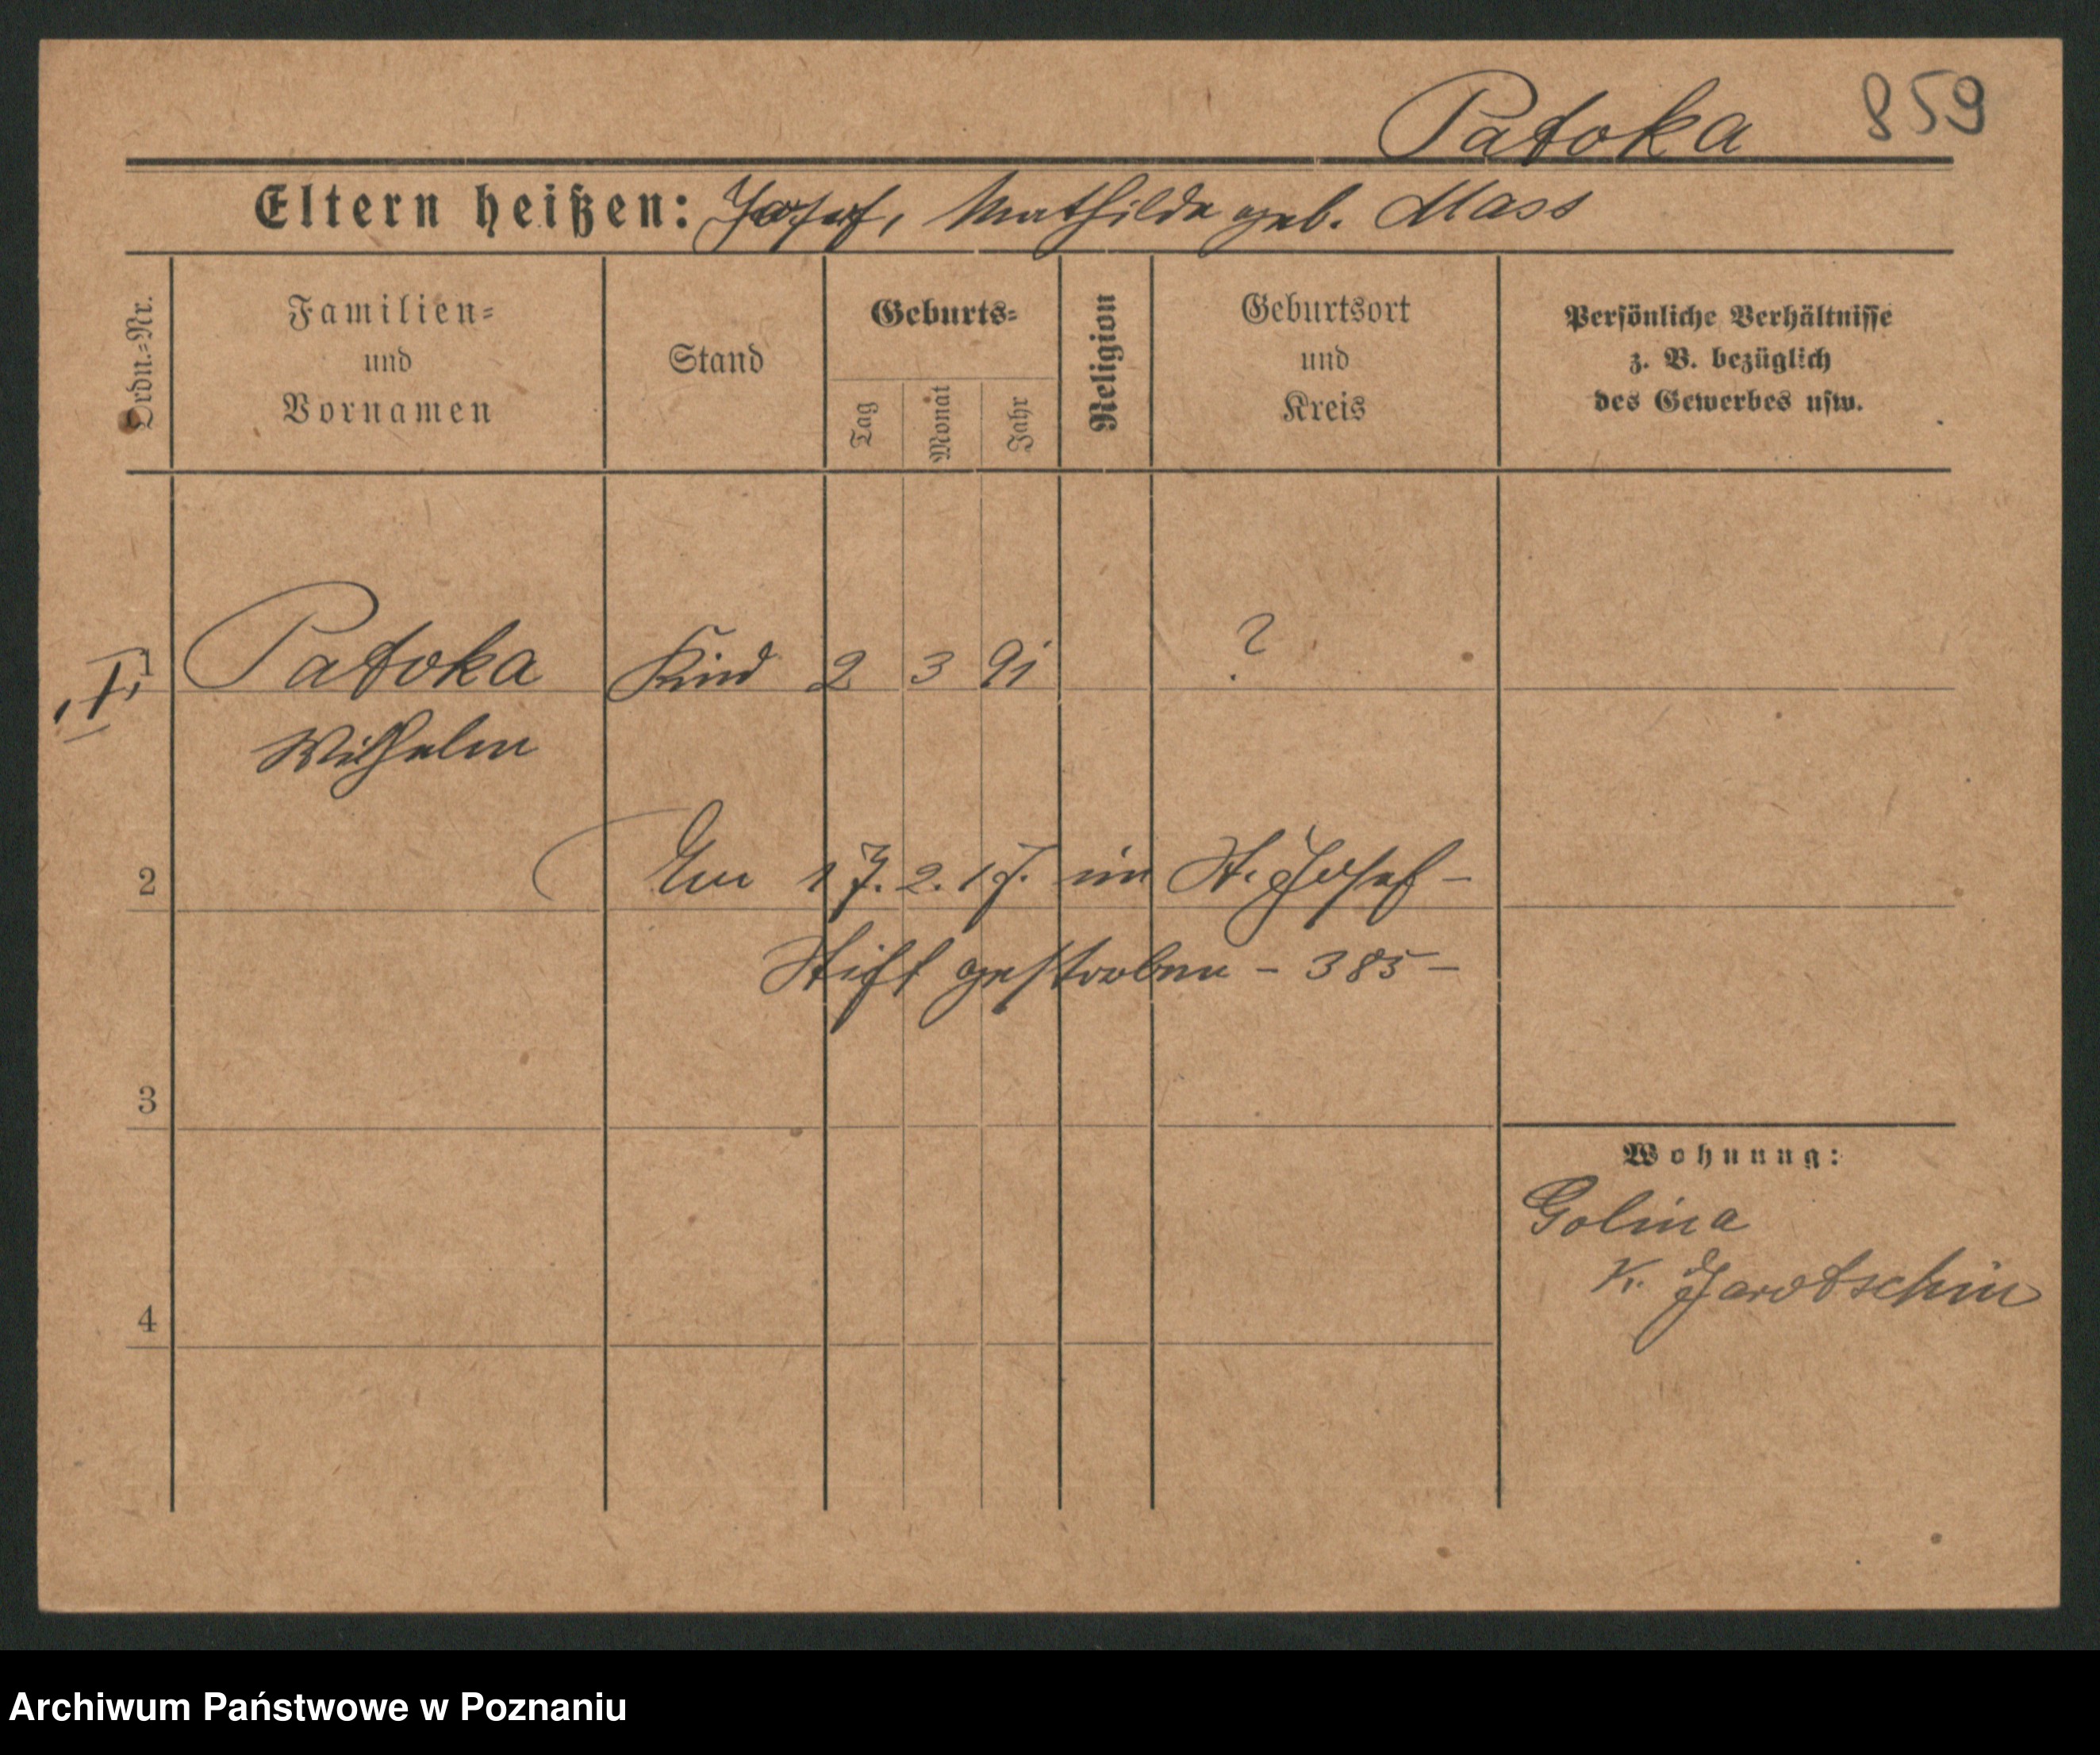 Patoka 859
Eltern heißen: Josef, Mathilde geb. Mass
Ordn.=Nr.
Familien=
und
Vornamen
Stand
Geburts=
Tag
Monat
Jahr
Religion
Geburtsort
und
Kreis
Persönliche Verhältnisse
z. B. bezüglich
des Gewerbes usw.
1 Patoka Kind 2 3 91 ?
Wilhelm
2 Am 17. 2. 17. im St. Josef-
Stift gestorben - 385 -
3
Wohnung:
Golina
K. Jarotschin
4
Archiwum Państwowe w Poznaniu